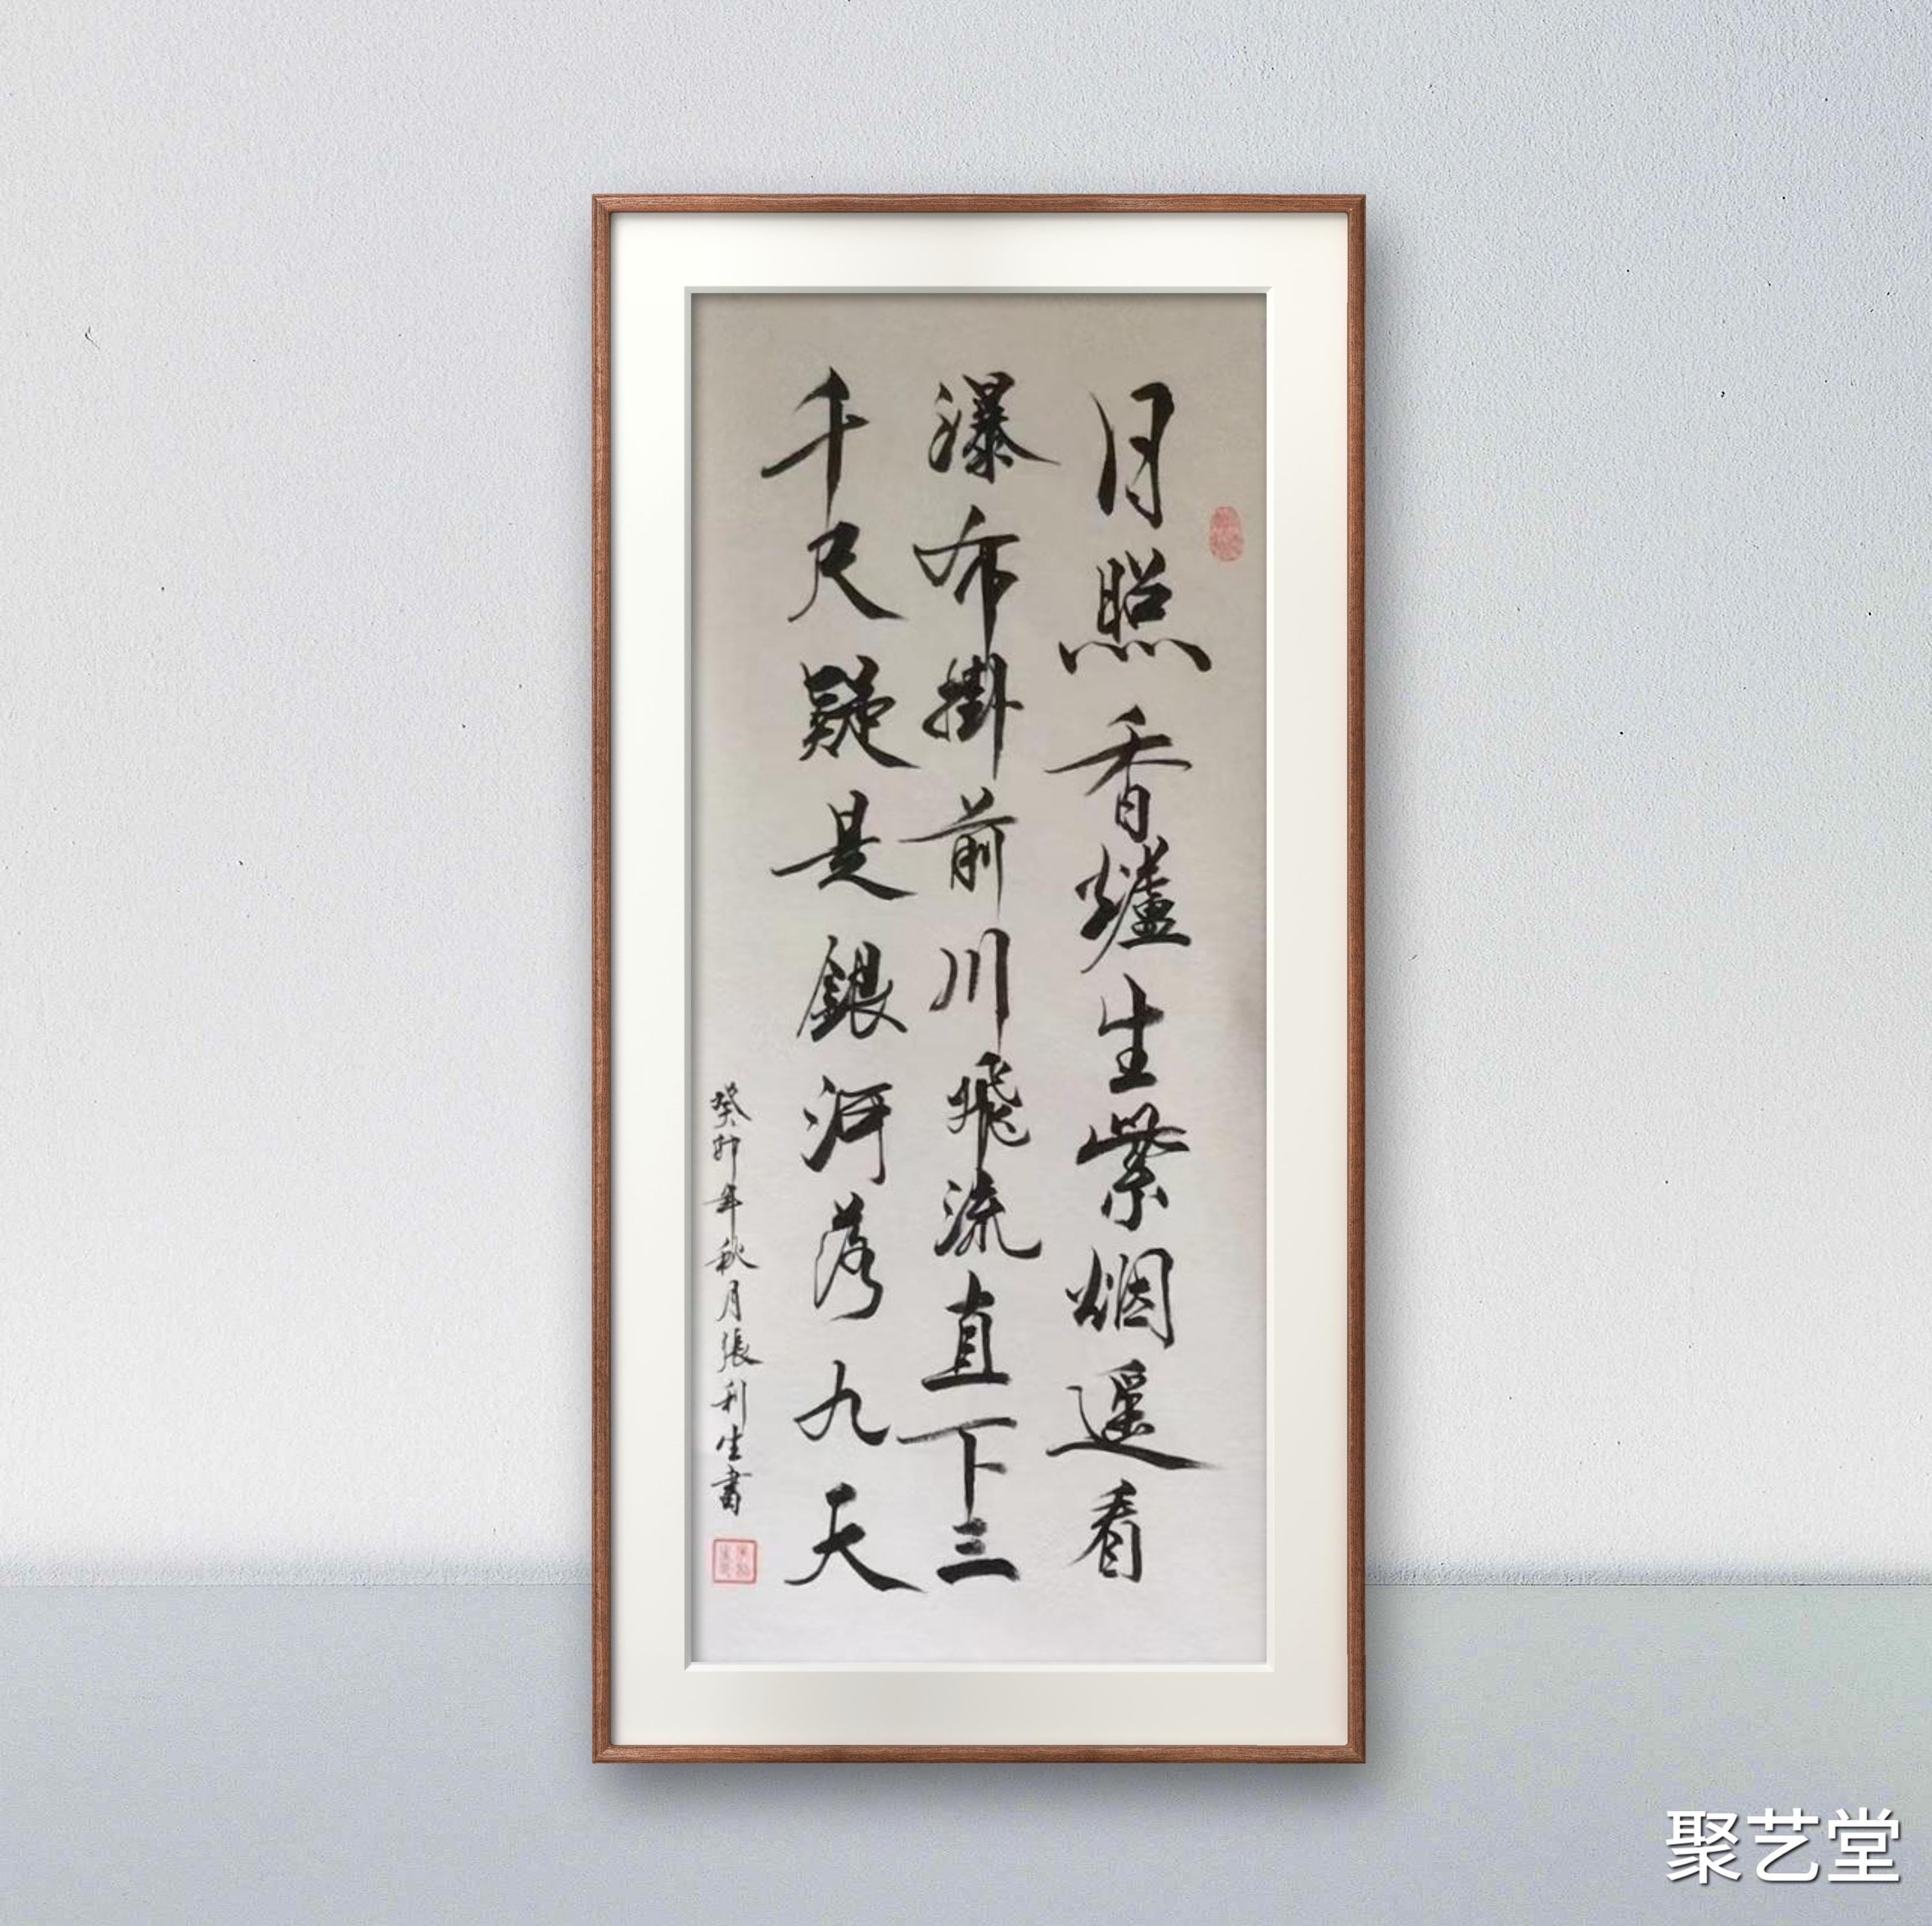 月照香爐生紫烟遥看
瀑布掛前川飛流直下三
千尺疑是銀河落九天
癸卯年秋月張利生書
聚艺堂